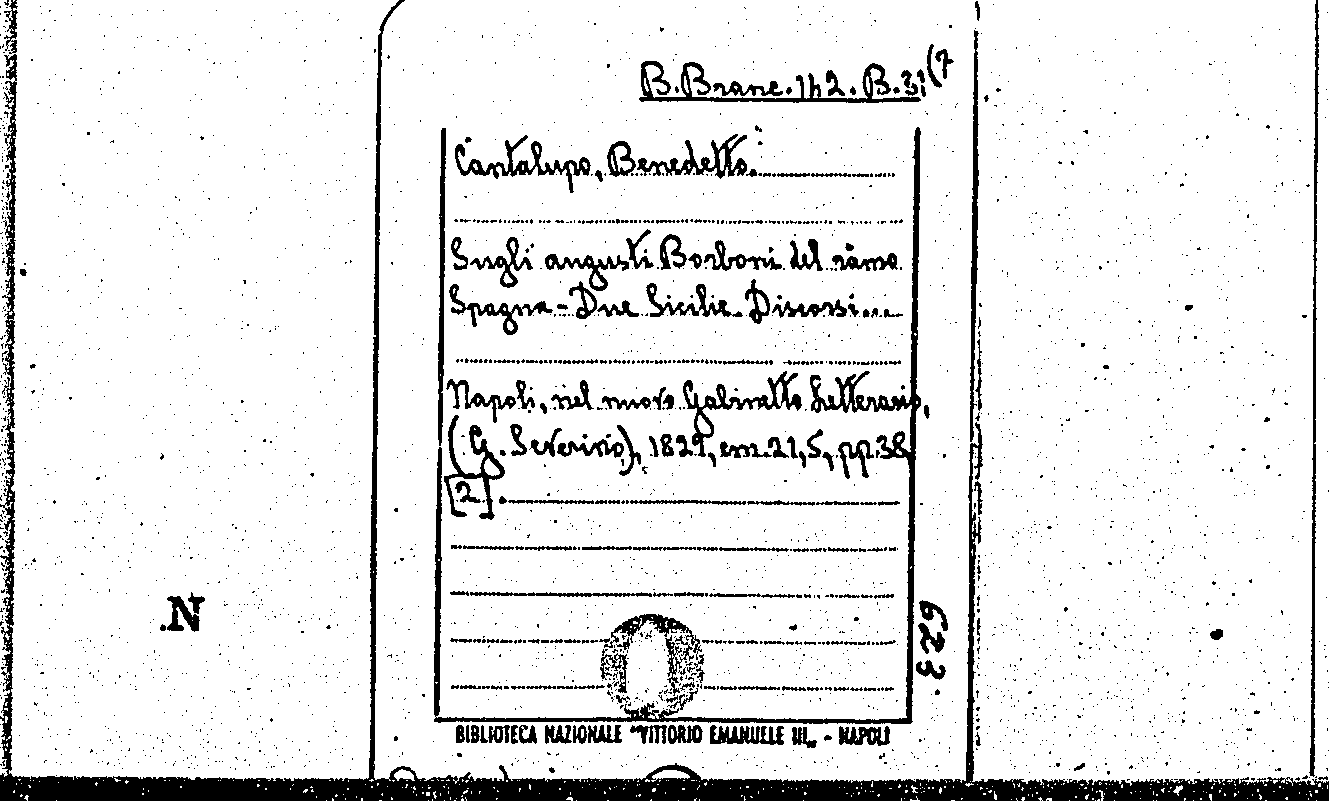 B. Branc. 142. B. 31(7
Cantalupo, Benedetto.
Sugli augusti Borboni del ramo
Spagna - Due Sicilie. Discorsi...
Napoli, nel nuovo Gabinetto Letterario,
(G. Severino), 1829, em. 21,5, pp. 38,
[2].
N
623.
BIBLIOTECA NAZIONALE "VITTORIO EMANUELE III„ - NAPOLI